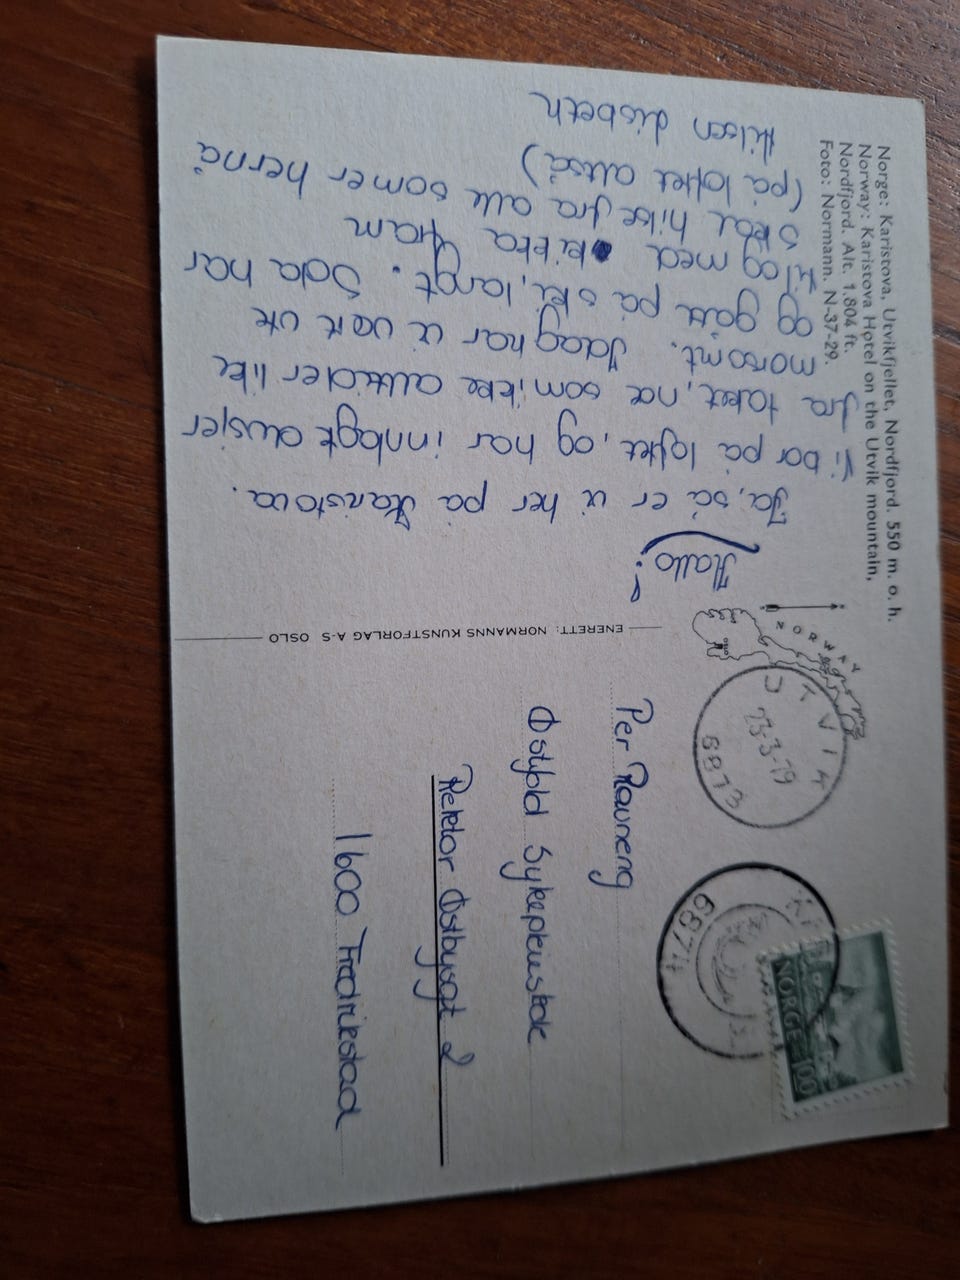 Norge: Karistova, Utvikfjellet, Nordfjord. 550 m. o. h.
Norway: Karistova Hotel on the Utvik mountain,
Nordfjord. Alt. 1.804 ft.
Foto: Normann. N-37-29.
Hallo!
Ja, så er vi her på Karistova.
Vi bor på loftet, og har innlagt dusjer
fra taket, noe som ikke alltid er like
morsomt. Idag har vi vært ute
og gått på ski, langt. Oda har
til og med kikka fram
Skal hilse fra alle som er herna
(på loftet altså)
Hilsen Lisbeth
ENERETT: NORMANNS KUNSTFORLAG A-S OSLO
NORWAY
OSLO
UTVIK
23-3-79
6873
6874
NORGE 100
Per Rauneng
Østfold Sykepleieskole
Rektor Østbysgt 2
1600 Fredrikstad